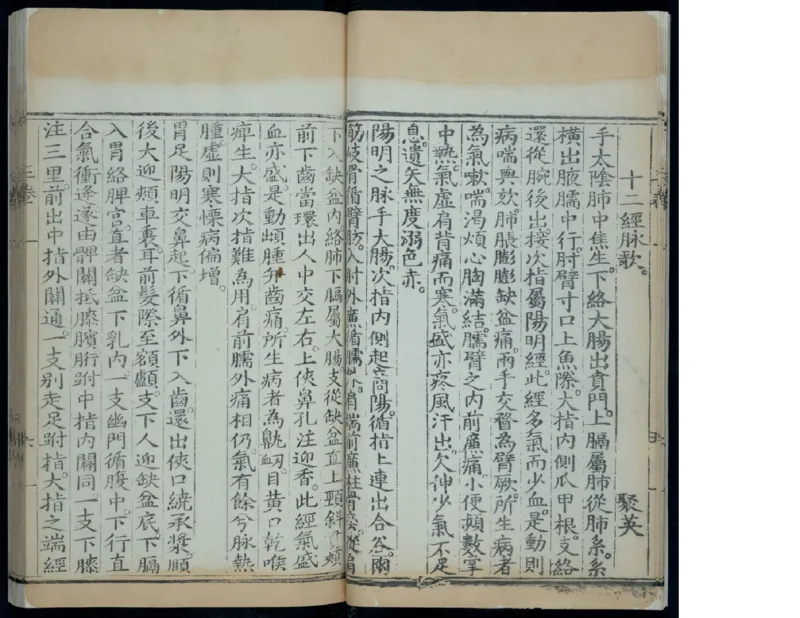 十二經脉歌。 聚英
手太陰肺中焦生。下絡大腸出賁門。上膈屬肺從肺系。系
橫出腋臑中行。肘臂寸口上魚際。大指內側爪甲根。支絡
還從腕後出。接次指屬陽明經。此經多氣而少血。是動則
病喘與欬。肺脹膨膨缺盆痛。兩手交瞀為臂厥。所生病者
為氣嗽。喘渴煩心胸滿結。臑臂之內前廉痛。小便頻數掌
中熱。氣虛肩背痛而寒。氣盛亦疼風汗出。欠伸少氣不足
息。遺矢無度溺色赤。
陽明之脉手大腸。次指內側起商陽。循指上連出合谷。兩
筋歧骨循臂肪。入肘外廉循臑外。肩端前廉柱骨傍。從肩
下入缺盆內。絡肺下膈屬大腸。支從缺盆直上頸。斜貫頰
前下齒當。環出人中交左右。上俠鼻孔注迎香。此經氣盛
血亦盛。是動䪼腫并齒痛。所生病者為鼽衄。目黃口乾喉
痺生。大指次指難為用。肩前臑外痛相仍。氣有餘兮脉熱
腫。虛則寒慄病偏增。
胃足陽明交鼻起。下循鼻外下入齒。還出俠口繞承漿。頤
後大迎頰車裏。耳前髮際至額顱。支下人迎缺盆底。下膈
入胃絡脾宮。直者缺盆下乳內。一支幽門循腹中。下行直
合氣衝逢。遂由髀關抵膝臏。胻跗中指內關同。一支下膝
注三里。前出中指外關通。一支别走足跗指。大指之端經
三卷